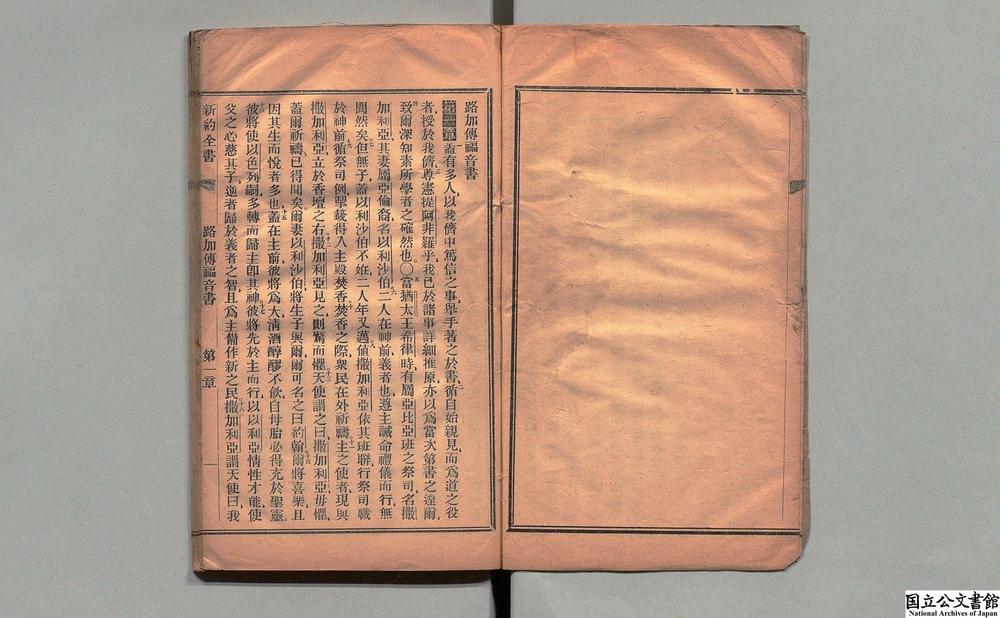 路加傳福音書
第一章 蓋有多人以我儕中篤信之事舉手著之於書循自始親見而爲道之役
者授於我儕尊憲提阿非羅乎我已於諸事詳細推原亦以爲當次第書之達爾
致爾深知素所學者之確然也〇當猶太王希律時有屬亞比亞班之祭司名撒
加利亞其妻屬亞倫裔名以利沙伯二人在神前義者也遵主誡命禮儀而行無
間然矣但無子蓋以利沙伯不姙二人年又邁値撒加利亞依其班聯行祭司職
於神前循祭司例掣籤得入主殿焚香焚香之際衆民在外祈禱主之使者現與
撒加利亞立於香壇之右撒加利亞見之則驚而懼天使謂之曰撒加利亞毋懼
蓋爾祈禱已得聞矣爾妻以利沙伯將生子與爾爾可名之曰約翰爾將喜樂且
因其生而悅者多也蓋在主前彼將爲大淸酒醇醪不飲自母胎必得充於聖靈
彼將使以色列嗣多轉而歸主卽其神彼將先於主而行以以利亞情性才能使
父之心慈其子逆者歸於義者之智且爲主備作新之民撒加利亞謂天使曰我
新約全書 路加傳福音書 第一章 一
国立公文書館
National Archives of Japan